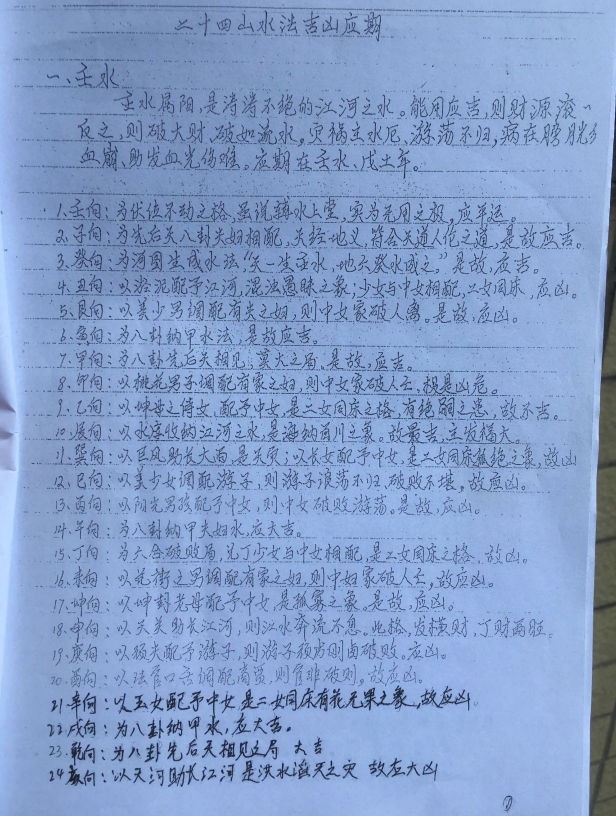 二十四山水法吉凶应期
一、壬水
壬水属阳，是涛涛不绝的江河之水。能用应吉，则财源滚
反之，则破大财、破如流水。灾祸主水厄、游荡不归，病在膀胱
血崩、易发血光伤难。应期在壬水、戊土年。
1.壬向：为伏位不动之格，虽说静水上堂，实为无用之极，应平运。
2.子向：为先后天八卦夫妇相配，天经地义，符合天道人伦之道，是故应吉。
3.癸向：为河图生成水法，“天一生壬水，地六癸水成之。”是故，应吉。
4.丑向：以淤泥配予江河，混浊愚昧之象；少女与中女相配，二女同床，应凶。
5.艮向：以美少男调配有夫之妇，则中女家破人离。是故，应凶。
6.寅向：为八卦纳甲水法，是故应吉。
7.甲向：为八卦先后天相见，是故，应吉。
8.卯向：以桃花男子调配有家之妇，则中女家破人亡，极是凶危。
9.乙向：以坤母之侍女，配予中女，是二女同床之格，有绝嗣之患，故不吉。
10.辰向：以水库收纳江河之水，是海纳百川之象。故最吉，主发福大。
11.巽向：以巨风助长大雨，是天灾；以长女配予中女，是二女同床孤绝之象，故凶
12.巳向：以美少女调配游子，则游子浪荡不归，破败不堪。故应凶。
13.丙向：以阳光男孩配予中女，则中女破败游荡。是故，应凶。
14.午向：为八卦纳甲夫妇水，应大吉。
15.丁向：为六合破败局，兑丁少女与中女相配，是二女同床之格，故凶。
16.未向：以花街之男调配有家之妇，则中妇家破人亡，故应凶。
17.坤向：以坤卦老母配予中女，是孤寡之象。是故，应凶。
18.申向：以天关助长江河，则江水奔流不息。此格，发横财，丁财两旺。
19.庚向：以猿犬配予游子，则游子颓为刑卤破败。应凶。
20.酉向：以法官口舌调配商贾，则官非破财。故应凶。
21.辛向：以玉女配予中女是二女同床有花无果之象，故应凶。
22.戌向：为八卦纳甲水，应大吉。
23.乾向：为八卦先后天相见之局 大吉
24.亥向：以天河助长江河是洪水滔天之灾 故应大凶